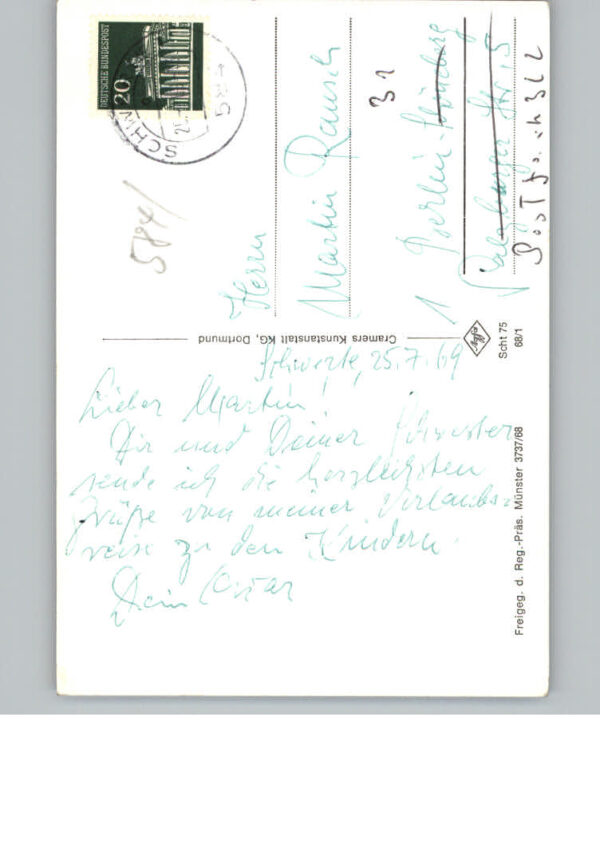 Schwerte, 25.7.69
Lieber Martin!
Dir und Deiner Schwester
sende ich die herzlichsten
Grüße von meiner Urlaubs-
reise zu den Kindern.
Dein Oskar
Cramers Kunstanstalt KG, Dortmund
DEUTSCHE BUNDESPOST
20
SCHW
584
584/
Herrn
Martin Rausch
31
1 Berlin-Schöneberg
Str. 5
Postfach 322
Agfa
Scht 75
68/1
Freigeg. d. Reg.-Präs. Münster 3737/68